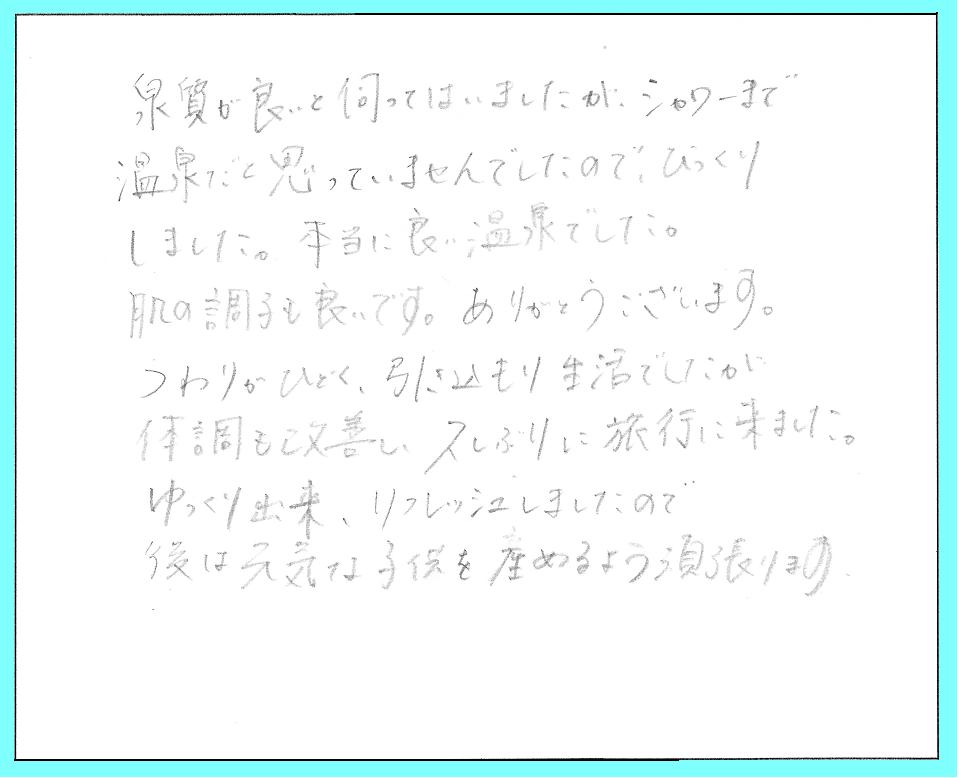 泉質が良いと伺ってはいましたが、シャワーまで
温泉だと思っていませんでしたので、びっくり
しました。本当に良い温泉でした。
肌の調子も良いです。ありがとうございます。
つわりがひどく、引き込もり生活でしたが
体調も改善し、久しぶりに旅行に来ました。
ゆっくり出来、リフレッシュしましたので
後は元気な子供を産めるよう頑張ります